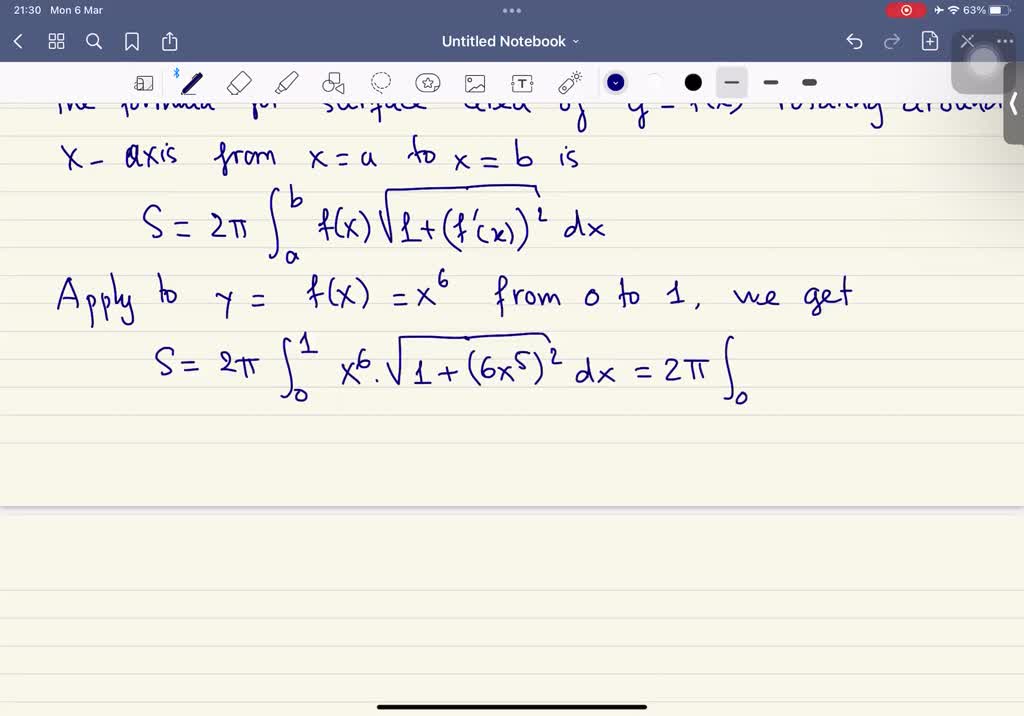 21:30 Mon 6 Mar
63%
Untitled Notebook
surface area of y = f(x) rotating around
x-axis from x = a to x = b is
S = 2π ∫_a^b f(x) √(1+(f'(x))²) dx
Apply to y = f(x) = x⁶ from 0 to 1, we get
S = 2π ∫_0^1 x⁶. √(1+(6x⁵)²) dx = 2π ∫_0